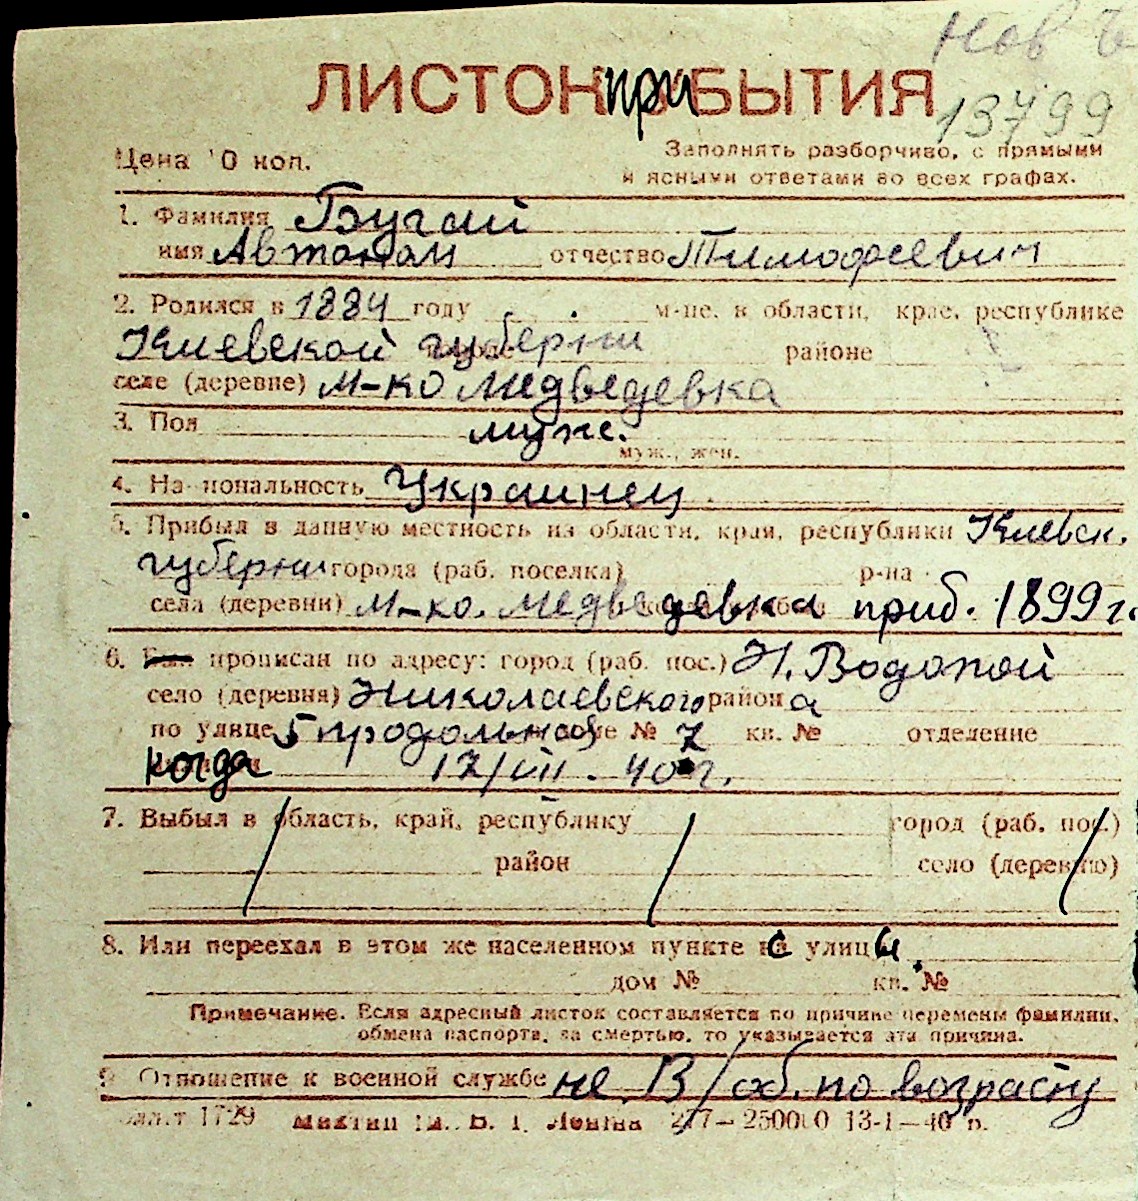 Нов
13799
ЛИСТОК приБЫТИЯ
Цена 10 коп.
Заполнять разборчиво, с прямыми
и ясными ответами во всех графах.
1. Фамилия Бугай
имя Автоном отчество Тимофеевич
2. Родился в 1884 году м-це, в области, крае, республике
Киевской губерни районе
селе (деревне) м-ко Медведевка
3. Пол муж.
муж., жен.
4. Национальность Украинец
5. Прибыл в данную местность из области, края, республики Киевск.
губерни города (раб. поселка) р-на
села (деревни) М-ко. Медведевка приб. 1899 г.
6. Был прописан по адресу: город (раб. пос.) Н. Водопой
село (деревня) Николаевского район а
по улице 5 продольная № 7 кв. № отделение
когда 17/VII. 40 г.
7. Выбыл в область, край, республику город (раб. пос.)
район село (деревню)
8. Или переехал в этом же населенном пункте с улицы
дом № кв. №
Примечание. Если адресный листок составляется по причине перемены фамилии,
обмена паспорта, за смертью, то указывается эта причина.
9. Отношение к военной службе не В/об. по возрасту
1729 Ленина 277—25000 13-1—40 г.